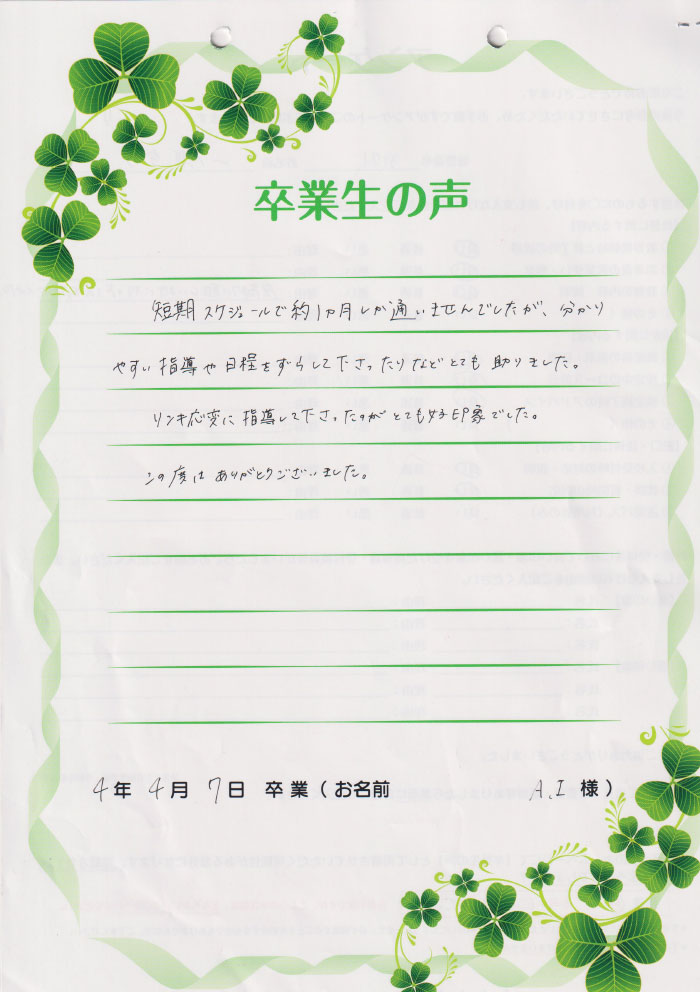 卒業生の声
短期スケジュールで約1ヵ月しか通いませんでしたが、分かり
やすい指導や日程をずらして下さったりなどとても助りました。
リンキ応変に指導して下さったのがとても好印象でした。
この度はありがとうございました。
4年4月7日 卒業(お名前 A.I 様)